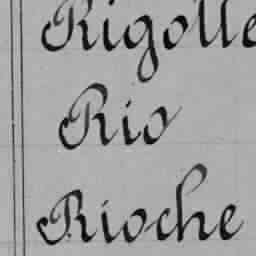 Rigolle
Rio
Rioche